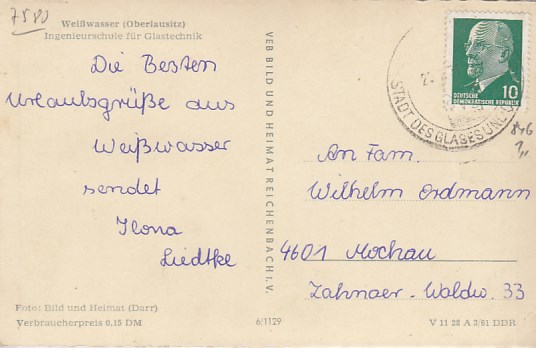 7580
Weißwasser (Oberlausitz)
Ingenieurschule für Glastechnik
Die Besten
Urlaubsgrüße aus
Weißwasser
sendet
Ilona
Liedtke
Foto: Bild und Heimat (Darr)
Verbraucherpreis 0,15 DM
VEB BILD UND HEIMAT REICHENBACH i. V.
6/1129
10
DEUTSCHE
DEMOKRATISCHE REPUBLIK
STADT DES GLASES UND
An Fam.
Wilhelm Erdmann
4601 Mochau
Zahnaer-Waldw. 33
V 11 28 A 3/61 DDR